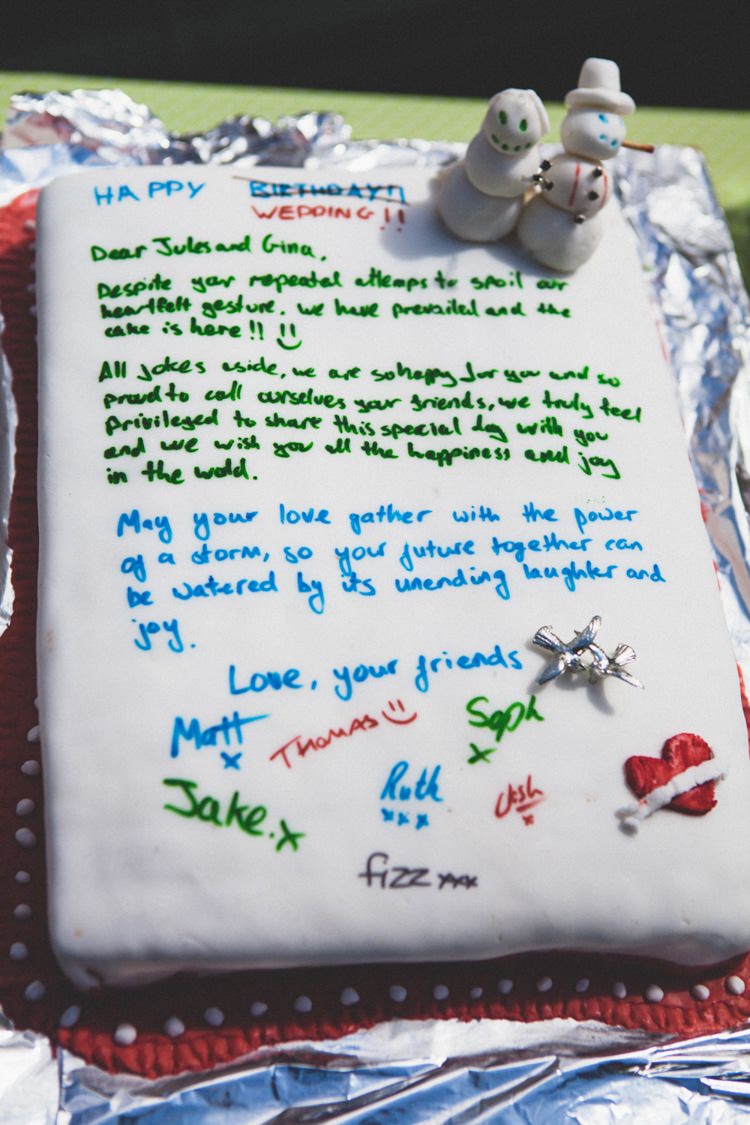 HAPPY BIRTHDAY!!
WEDDING!!
Dear Jules and Gina,
Despite your repeated attemps to spoil our
heartfelt gesture, we have prevailed and the
cake is here!! :)
All jokes aside, we are so happy for you and so
proud to call ourselves your friends, we truly feel
privileged to share this special day with you
and we wish you all the happiness and joy
in the world.
May your love gather with the power
of a storm, so your future together can
be watered by its unending laughter and
joy.
Love, your friends
Matt x
THOMAS :)
Soph x
Jake. x
Ruth xxx
x
fizz xxx